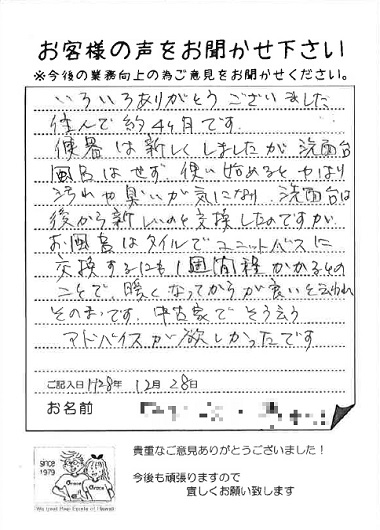 お客様の声をお聞かせ下さい
※今後の業務向上の為ご意見をお聞かせください。
いろいろありがとうございました
住んで約4ヶ月です。
便器は新しくしましたが、洗面台
風呂はせず、使い始めるとやはり
汚れや臭いが気になり、洗面台は
後から新しいのと交換したのですが、
お風呂はタイルでユニットバスに
交換するにも1週間程かかるとの
ことで、暖くなってからが良いと云われ
そのままです。中古家でそう云う
アドバイスが欲しかったです
ご記入日 H28年 12月 28日
お名前
貴重なご意見ありがとうございました!
今後も頑張りますので
宜しくお願い致します
since
1979